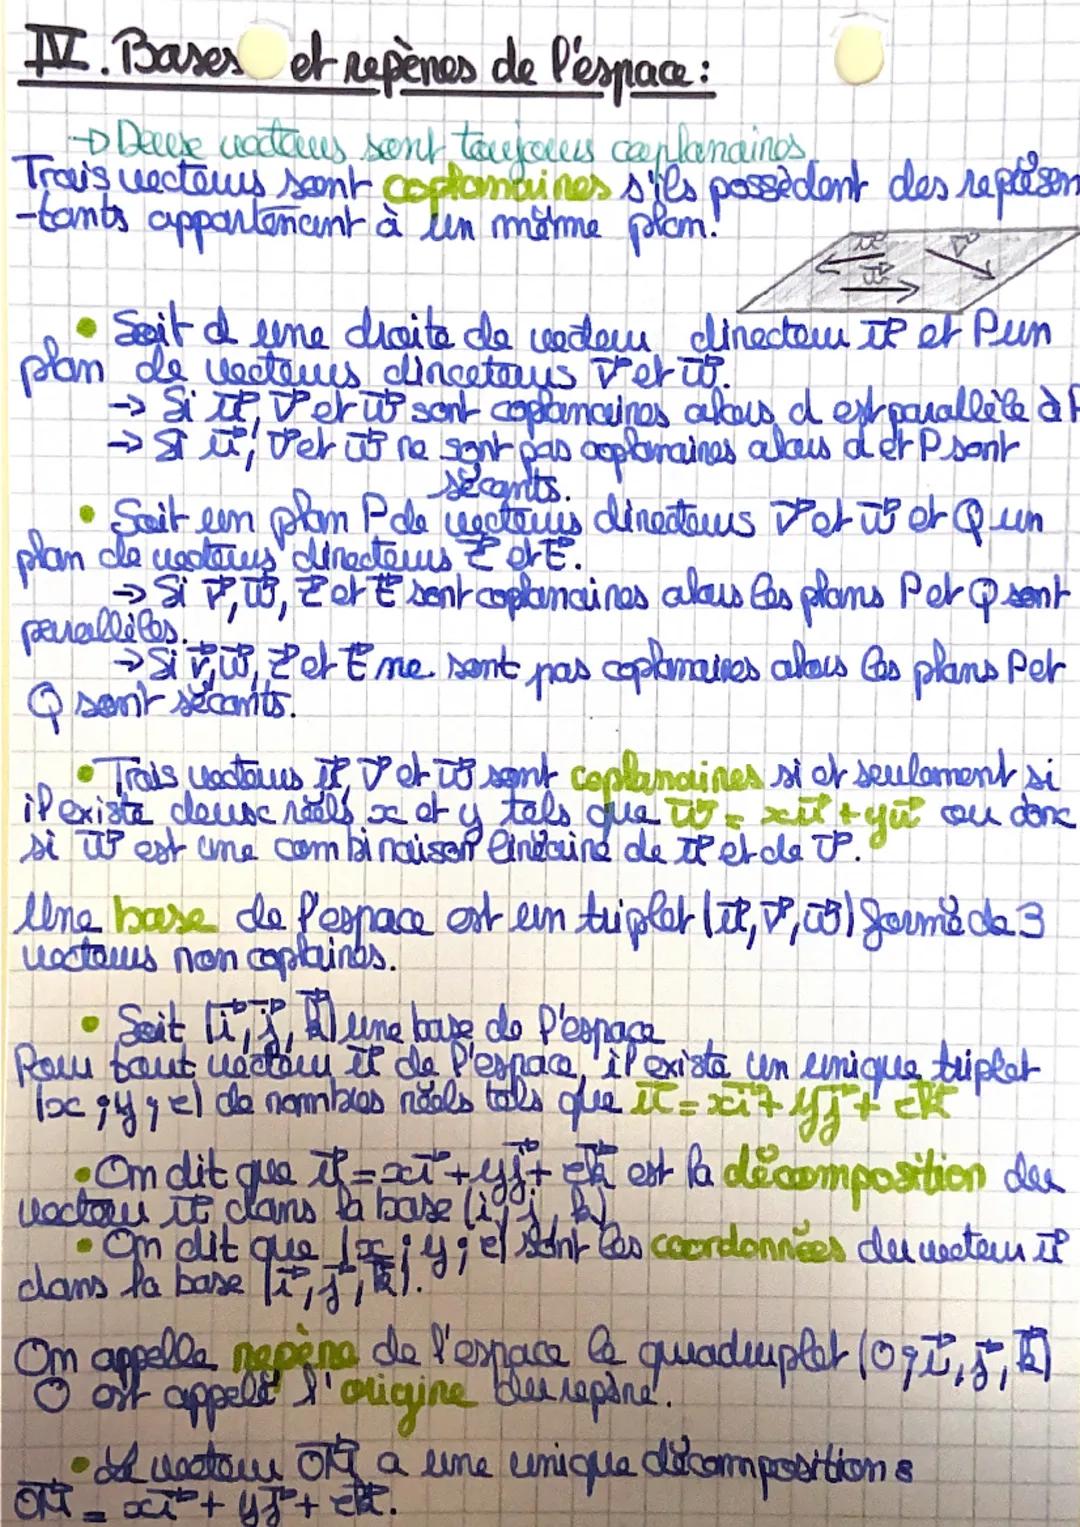 IV. Bases et repères de l'espace :
→ Deux vecteurs sont toujours coplanaires
Trois vecteurs sont coplanaires s'ils possèdent des représen
-tants appartenant à un même plan.
u⃗ v⃗
w⃗
• Soit d une droite de vecteur directeur u⃗ et P un
plan de vecteurs directeurs v⃗ et w⃗.
→ Si u⃗, v⃗ et w⃗ sont coplanaires alors d est parallèle à P
→ Si u⃗, v⃗ et w⃗ ne sont pas coplanaires alors d et P sont
sécants.
• Soit un plan P de vecteurs directeurs v⃗ et w⃗ et Q un
plan de vecteurs directeurs z⃗ et t⃗.
→ Si v⃗, w⃗, z⃗ et t⃗ sont coplanaires alors les plans P et Q sont
parallèles.
→ Si v⃗, w⃗, z⃗ et t⃗ ne sont pas coplanaires alors les plans P et
Q sont sécants.
• Trois vecteurs u⃗, v⃗ et w⃗ sont coplanaires si et seulement si
il existe deux réels x et y tels que w⃗ = xu⃗ + yu⃗ ou donc
si w⃗ est une combinaison linéaire de u⃗ et de v⃗.
Une base de l'espace est un triplet (u⃗, v⃗, w⃗) formé de 3
vecteurs non coplaires.
• Soit (i⃗, j⃗, k⃗) une base de l'espace
Pour tout vecteur u⃗ de l'espace, il existe un unique triplet
(x ; y ; z) de nombres réels tels que u⃗ = xi⃗ + yj⃗ + zk⃗
• On dit que u⃗ = xi⃗ + yj⃗ + zk⃗ est la décomposition du
vecteur u⃗ dans la base (i, j, k)
• On dit que (x ; y ; z) sont les coordonnées du vecteur u⃗
dans la base (i⃗, j⃗, k⃗).
On appelle repère de l'espace le quadruplet (O ; i⃗, j⃗, k⃗)
O est appelé l'origine du repère.
• Le vecteur OM⃗ a une unique décomposition :
OM⃗ = xi⃗ + yj⃗ + zk⃗.